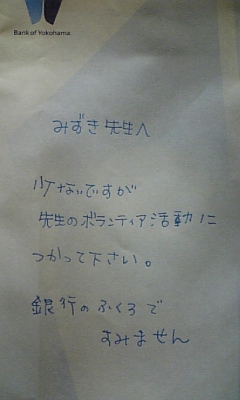 Bank of Yokohama
みずき先生へ
少ないですが
先生のボランティア活動に
つかって下さい。
銀行のふくろで
すみません